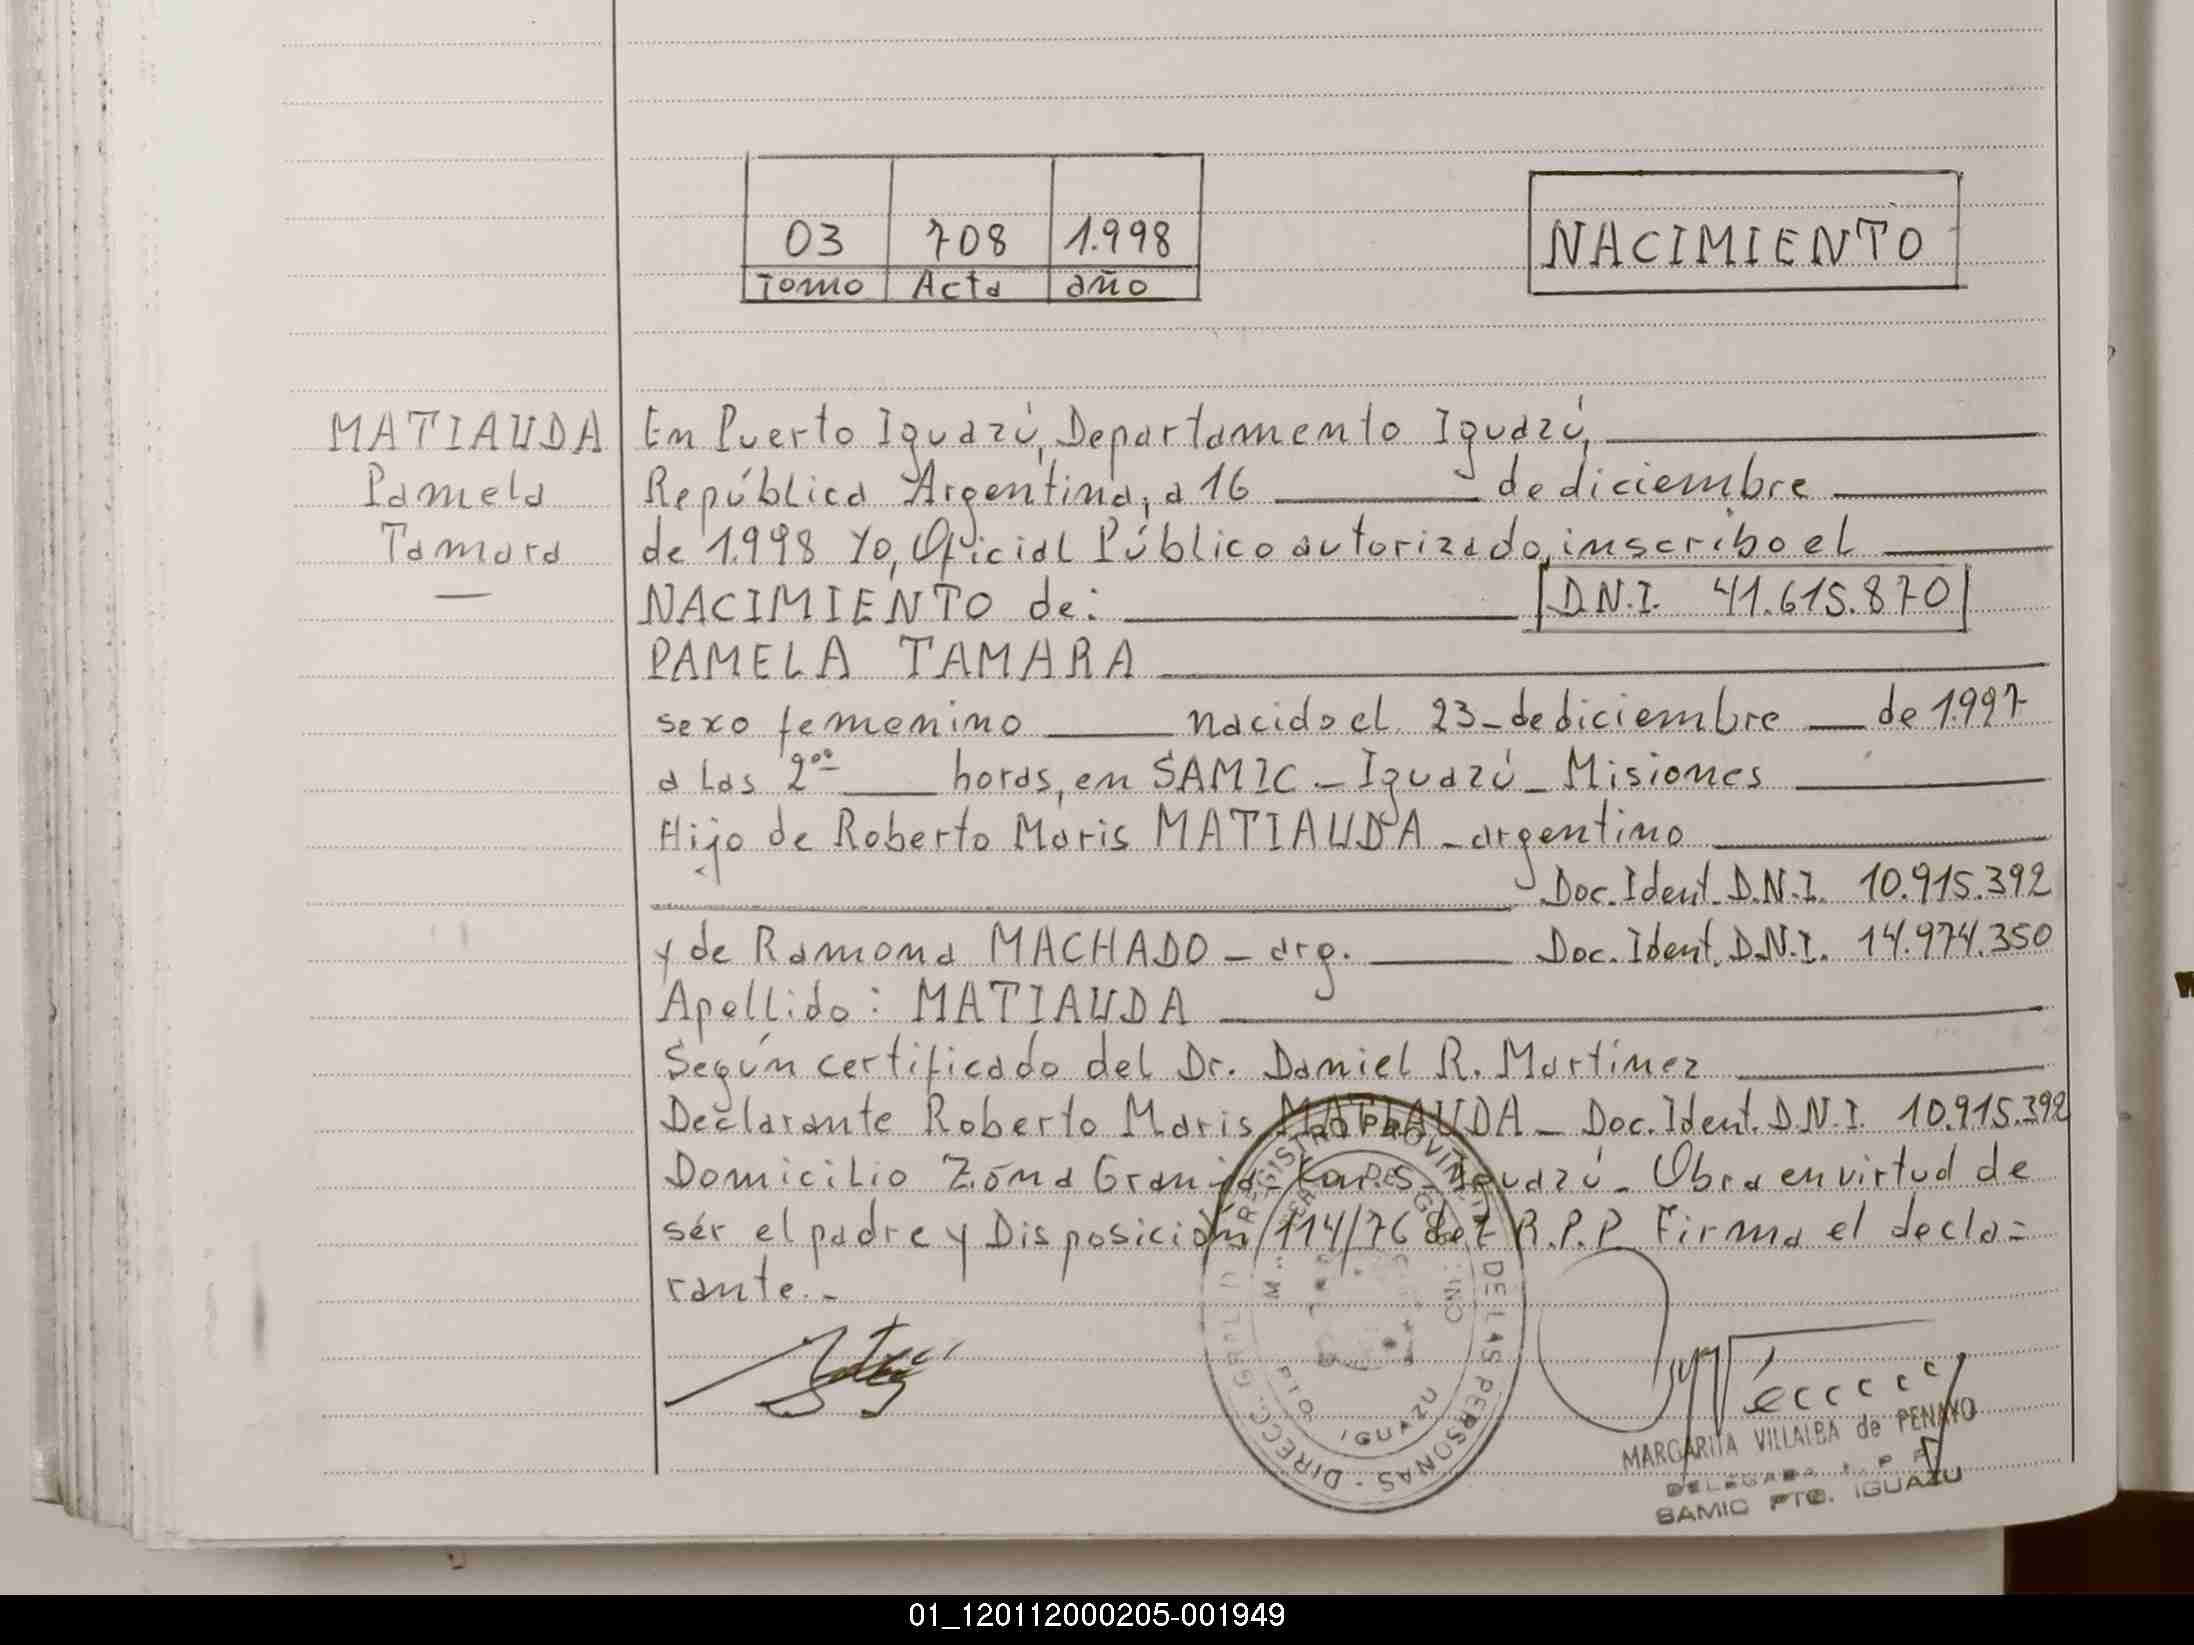 03 708 1.998
Tomo Acta año
NACIMIENTO
MATIAUDA
Pamela
Tamara
En Puerto Iguazú, Departamento Iguazú,
República Argentina, a 16 de diciembre
de 1.998 Yo, Oficial Público autorizado, inscribo el
NACIMIENTO de: D.N.I. 41.615.870
PAMELA TAMARA
sexo femenino nacido el 23-de diciembre de 1.997
a las 2°° horas, en SAMIC - Iguazú - Misiones
Hijo de Roberto Maris MATIAUDA - argentino
Doc. Ident. D.N.I. 10.915.392
y de Ramona MACHADO - arg. Doc. Ident. D.N.I. 14.974.350
Apellido: MATIAUDA
Según certificado del Dr. Daniel R. Martínez
Declarante Roberto Maris MATIAUDA - Doc. Ident. D.N.I. 10.915.392
Domicilio Zona Granja - Iguazú - Obra en virtud de
sér el padre y Disposición 114/76 del R.P.P. Firma el decla=
rante.-
REGISTRO PROVINCIAL DE LAS PERSONAS - DIRECC. GRAL.
IGUAZU
MARGARITA VILLALBA de PENAYO
DELEGADA R. P. P.
SAMIC PTO. IGUAZU
01_120112000205-001949